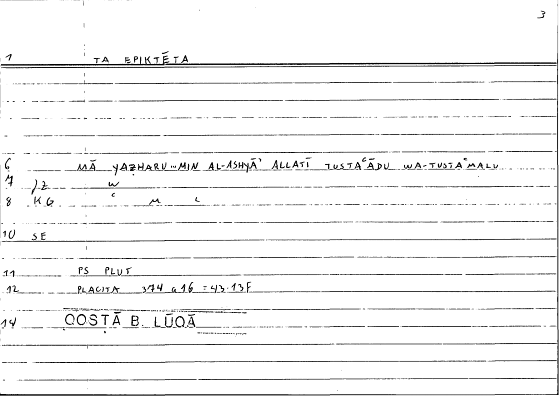 3
1 TA EPIKTĒTA
6 MĀ YAẒHARU MIN AL-ASHYĀʾ ALLATĪ TUSTAʿĀDU WA-TUSTAʿMALU
7 JZ W
8 KG ʿ M L
10 SE
11 PS PLUT
12 PLACITA 374 a 16 = 43.13F
14 QOSṬĀ B. LŪQĀ